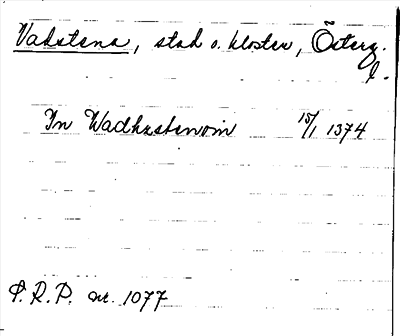 Vadstena, stad o. kloster, Österg.
l.
In Wadhzstenom 15/1 1374
S.R.P. nr. 1077